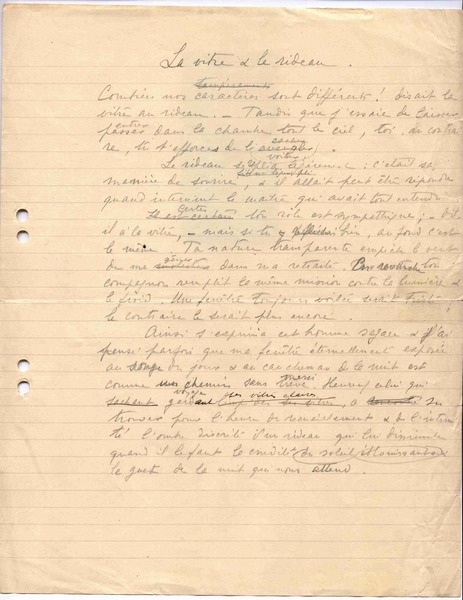 La vitre & le rideau.
Combien nos caractères sont différents ! disait la
vitre au rideau. — Tandis que j'essaie de laisser
passer dans la chambre tout le ciel, toi, au contrai
re, tu t'efforces de le cacher
voiler
Le rideau légèrement : c'était sa
manière de sourire, & il allait peut être répondre
quand intervint le maître qui avait tout entendu.
Certes ton rôle est sympathique, — dit
il à la vitre, — mais si tu y réfléchis bien, au fond c'est
le même. Ta nature transparente empêche le vent
de me gêner dans ma retraite. En revanche ton
compagnon remplit la même mission contre la lumière &
le froid. Une fenêtre toujours voilée serait triste !
le contraire le serait plus encore.
Ainsi s'exprima cet homme sage & j'ai
pensé parfois que ma fenêtre éternellement exposée
au songe du jour & au cauchemar de la nuit est
comme un chemin sans merci. Heureux celui qui
voyage gardant ses vitres claires, a su
trouver pour l'heure de recueillement & de l'intimi
té l'ombre discrète d'un rideau qui lui dissimule
quand il le faut la crudité du soleil éblouissant &
le guet de la nuit qui nous attend.